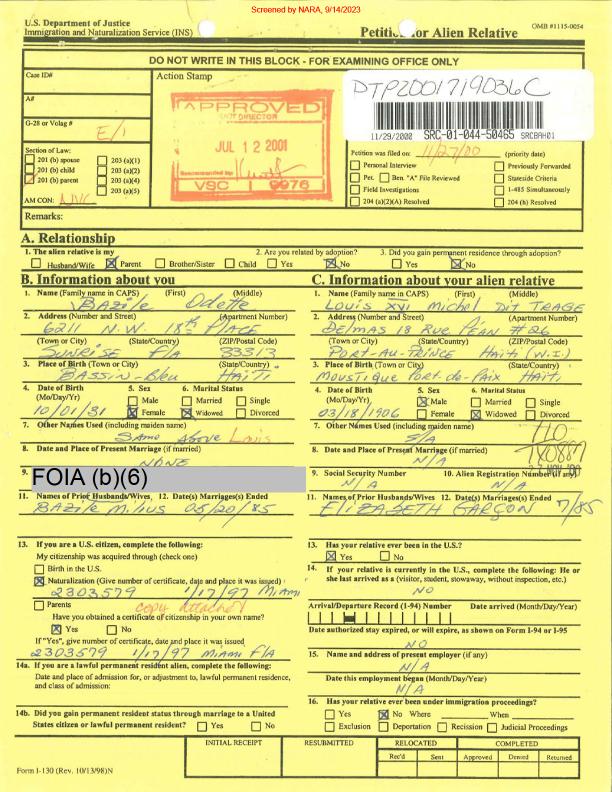 Screened by NARA, 9/14/2023
U.S. Department of Justice
Immigration and Naturalization Service (INS)
Petition for Alien Relative
OMB #1115-0054
DO NOT WRITE IN THIS BLOCK - FOR EXAMINING OFFICE ONLY
Case ID#
Action Stamp
A#
G-28 or Volag #
E/1
Section of Law:
201 (b) spouse
203 (a)(1)
201 (b) child
203 (a)(2)
201 (b) parent
203 (a)(4)
203 (a)(5)
AM CON: NVC
APPROVED
DIRECTOR
JUL 12 2001
Recommended by
VSC 9976
DTP2001719036C
11/29/2000 SRC-01-044-50465 SRCBAH01
Petition was filed on: 11/27/00 (priority date)
Personal Interview
Previously Forwarded
Pet. Ben. "A" File Reviewed
Stateside Criteria
Field Investigations
I-485 Simultaneously
204 (a)(2)(A) Resolved
204 (h) Resolved
Remarks:
A. Relationship
1. The alien relative is my
2. Are you related by adoption?
3. Did you gain permanent residence through adoption?
Husband/Wife
Parent
Brother/Sister
Child
Yes
No
Yes
No
B. Information about you
1. Name (Family name in CAPS) (First) (Middle)
Bazile Odette
2. Address (Number and Street) (Apartment Number)
6211 N.W. 18th PLACE
(Town or City) (State/Country) (ZIP/Postal Code)
SUNRISE F/A 33313
3. Place of Birth (Town or City) (State/Country)
BASSIN-Bleu HAITI
4. Date of Birth (Mo/Day/Yr)
5. Sex
6. Marital Status
Male
Married
Single
10/01/31
Female
Widowed
Divorced
7. Other Names Used (including maiden name)
Same Above Louis
8. Date and Place of Present Marriage (if married)
NONE
9.
FOIA (b)(6)
11. Names of Prior Husbands/Wives 12. Date(s) Marriage(s) Ended
BAZILE Milius 05/20/85
13. If you are a U.S. citizen, complete the following:
My citizenship was acquired through (check one)
Birth in the U.S.
Naturalization (Give number of certificate, date and place it was issued)
2303579 1/17/97 MIAMI
Parents
copy attached
Have you obtained a certificate of citizenship in your own name?
Yes
No
If "Yes", give number of certificate, date and place it was issued
2303579 1/17/97 MiAMi F/A
14a. If you are a lawful permanent resident alien, complete the following:
Date and place of admission for, or adjustment to, lawful permanent residence,
and class of admission:
14b. Did you gain permanent resident status through marriage to a United
States citizen or lawful permanent resident? Yes No
C. Information about your alien relative
1. Name (Family name in CAPS) (First) (Middle)
LOUIS XVI Michel DIT TRAGE
2. Address (Number and Street) (Apartment Number)
DelMAS 18 Rue PEAN # 26
(Town or City) (State/Country) (ZIP/Postal Code)
PORT-AU-PRINCE HAITI (W.I.)
3. Place of Birth (Town or City) (State/Country)
MOUSTIQUE PORT-de-PAIX HAITI
4. Date of Birth (Mo/Day/Yr)
5. Sex
6. Marital Status
Male
Married
Single
03/18/1906
Female
Widowed
Divorced
7. Other Names Used (including maiden name)
S/A
8. Date and Place of Present Marriage (if married)
N/A
9. Social Security Number 10. Alien Registration Number (if any)
N/A N/A
11. Names of Prior Husbands/Wives 12. Date(s) Marriage(s) Ended
ElIZABETH GARÇON 7/85
13. Has your relative ever been in the U.S.?
Yes
No
14. If your relative is currently in the U.S., complete the following: He or
she last arrived as a (visitor, student, stowaway, without inspection, etc.)
NO
Arrival/Departure Record (I-94) Number Date arrived (Month/Day/Year)
Date authorized stay expired, or will expire, as shown on Form I-94 or I-95
NO
15. Name and address of present employer (if any)
N/A
Date this employment began (Month/Day/Year)
N/A
16. Has your relative ever been under immigration proceedings?
Yes No Where When
Exclusion Deportation Recission Judicial Proceedings
INITIAL RECEIPT
RESUBMITTED
RELOCATED
COMPLETED
Rec'd
Sent
Approved
Denied
Returned
Form I-130 (Rev. 10/13/98)N